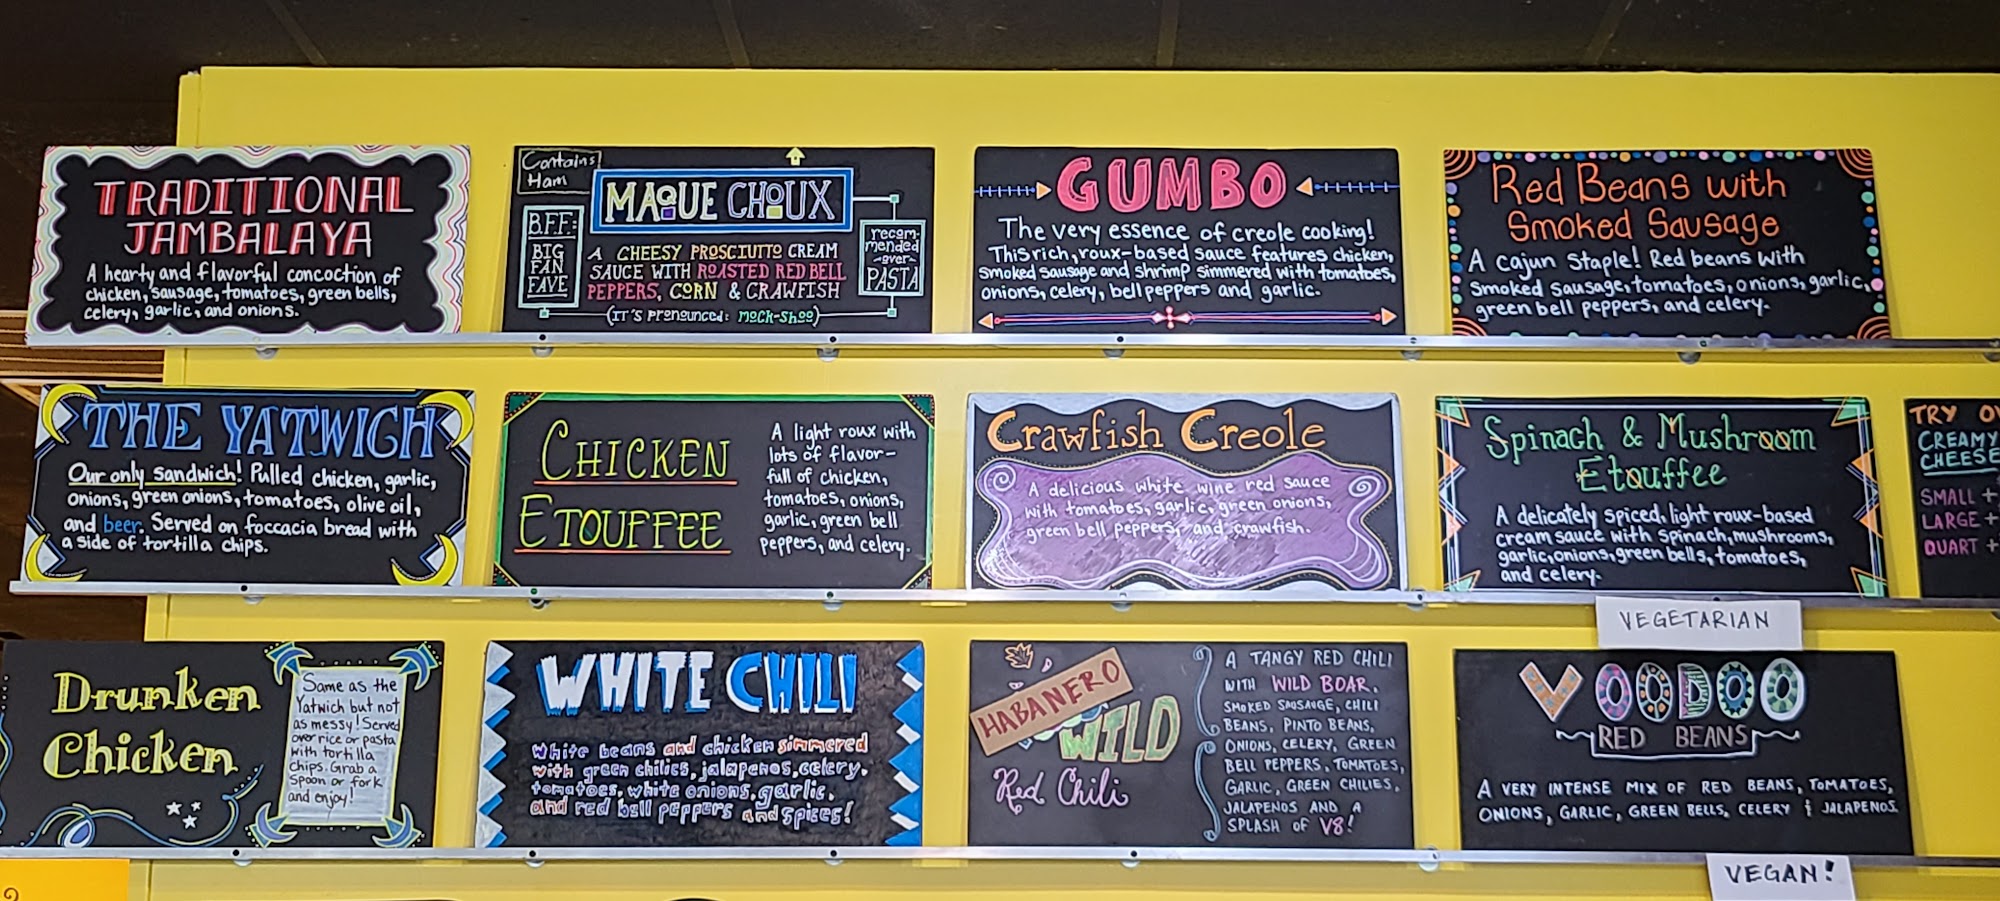 TRADITIONAL
JAMBALAYA
A hearty and flavorful concoction of
chicken, sausage, tomatoes, green bells,
celery, garlic, and onions.
Contains
Ham
MAQUE CHOUX
B.F.F.:
BIG
FAN
FAVE
A CHEESY PROSCIUTTO CREAM
SAUCE WITH ROASTED RED BELL
PEPPERS, CORN & CRAWFISH
recom-
mended
-over-
PASTA
(IT'S PRONOUNCED: MOCK-SHOO)
GUMBO
The very essence of creole cooking!
This rich, roux-based sauce features chicken,
smoked sausage and shrimp simmered with tomatoes,
onions, celery, bell peppers and garlic.
Red Beans with
Smoked Sausage
A cajun Staple! Red beans with
smoked sausage, tomatoes, onions, garlic,
green bell peppers, and celery.
THE YATWICH
Our only sandwich! Pulled chicken, garlic,
onions, green onions, tomatoes, olive oil,
and beer. Served on foccacia bread with
a side of tortilla chips.
CHICKEN
ETOUFFEE
A light roux with
lots of flavor-
full of chicken,
tomatoes, onions,
garlic, green bell
peppers, and celery.
Crawfish Creole
A delicious white wine red sauce
with tomatoes, garlic, green onions,
green bell peppers, and crawfish.
Spinach & Mushroom
Etouffee
A delicately spiced, light roux-based
cream sauce with spinach, mushrooms,
garlic, onions, green bells, tomatoes,
and celery.
VEGETARIAN
TRY
CREAMY
CHEESE
SMALL +
LARGE +
QUART +
Drunken
Chicken
Same as the
Yatwich but not
as messy! Served
over rice or pasta
with tortilla
chips. Grab a
spoon or fork
and enjoy!
WHITE CHILI
White beans and chicken simmered
with green chilies, jalapenos, celery,
tomatoes, white onions, garlic,
and red bell peppers and spices!
HABANERO
WILD
Red Chili
A TANGY RED CHILI
WITH WILD BOAR,
SMOKED SAUSAUGE, CHILI
BEANS, PINTO BEANS,
ONIONS, CELERY, GREEN
BELL PEPPERS, TOMATOES,
GARLIC, GREEN CHILIES,
JALAPENOS AND A
SPLASH OF V8!
VOODOO
RED BEANS
A VERY INTENSE MIX OF RED BEANS, TOMATOES,
ONIONS, GARLIC, GREEN BELLS, CELERY & JALAPENOS.
VEGAN!